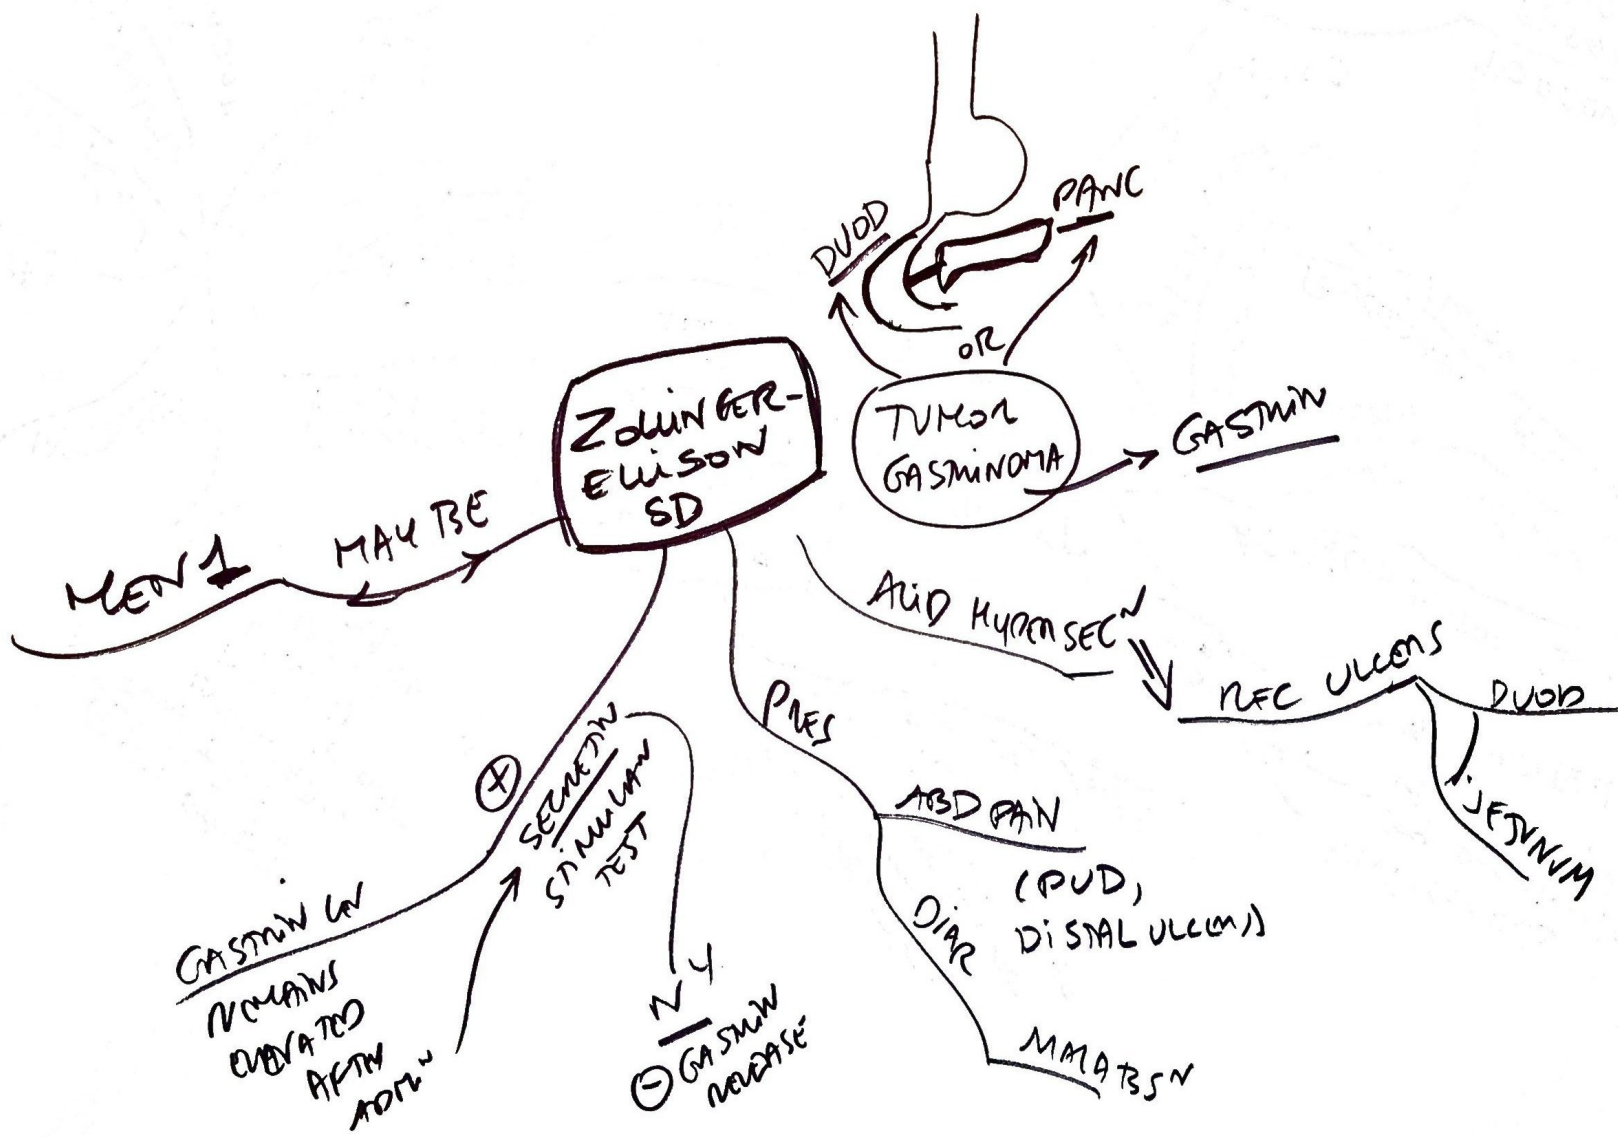 PANC
DUOD
OR
TUMOR
GASTRINOMA
GASTRIN
ZOLLINGER-
ELLISON
SD
MAY BE
MEN 1
ACID HYPERSECN
REC ULCERS
DUOD
JEJUNUM
PRES
ABD PAIN
(PUD,
DISTAL ULCERS)
DIAR
MALABSN
+
SECRETIN
STIMULAN
TEST
GASTRIN LV
REMAINS
ELEVATED
AFTR
ADMN
NY
- GASTRIN
RELEASE